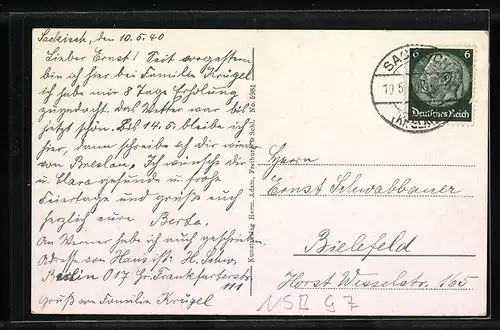 Sackisch, den 10.5.40
Lieber Ernst! Seit vorgestern
bin ich hier bei Familie Krügel
ich habe mir 8 Tage Erholung
zugedacht. Das Wetter war bis
jetzt schön. Bis 14.5. bleibe ich
hier, dann schreibe ich Dir wieder
von Breslau. Ich wünsche Dir
u. Clara gesunde u. frohe
Feiertage und grüße euch
herzlich eure Berta.
An Werner habe ich auch geschrieben.
Adresse von Hans ist: H. Schw.
Berlin O17 Gr. Frankfurterstr.
111
Gruß von Familie Krügel
Kunstverlag Herm. Adam, Freiburg Schl. No. 5984
6 6
Deutsches Reich
SACKISCH
10.5.
Herrn
Ernst Schwabbauer
Bielefeld
Horst Wesselstr. 165
NSD G7